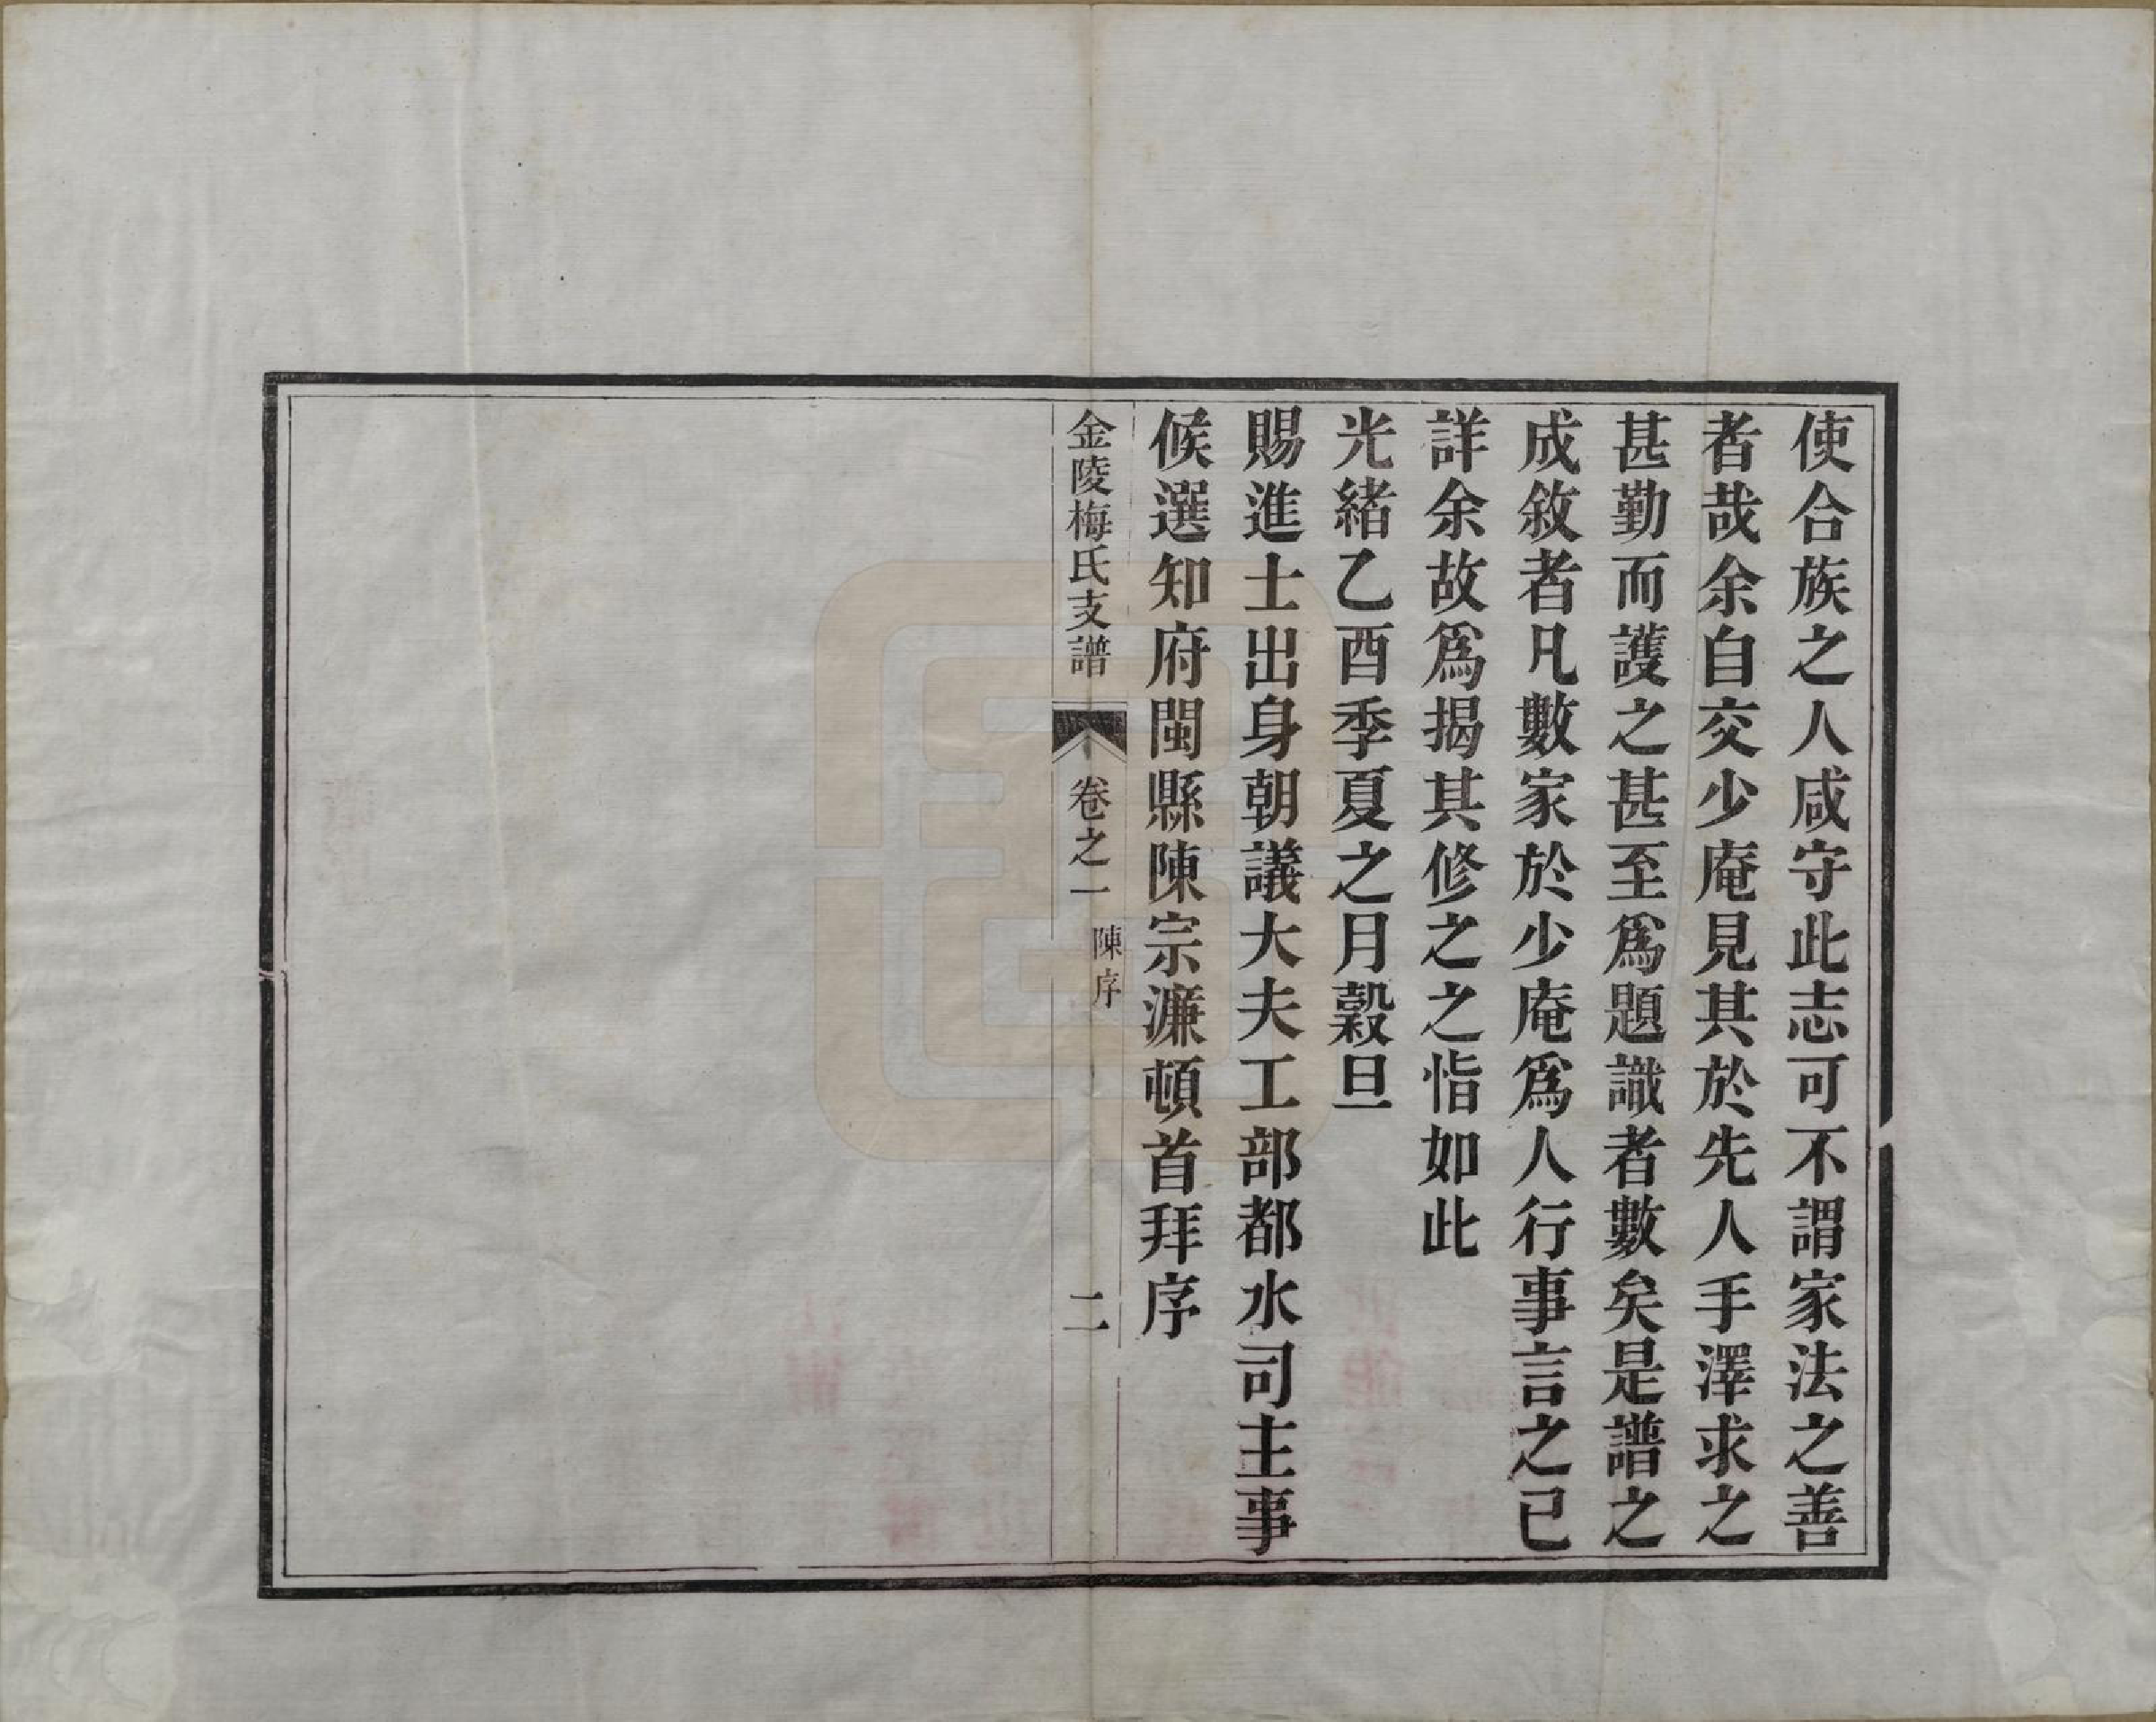 使合族之人咸守此志可不謂家法之善
者哉余自交少庵見其於先人手澤求之
甚勤而護之甚至爲題識者數矣是譜之
成敘者凡數家於少庵爲人行事言之已
詳余故爲揭其修之之恉如此
光緒乙酉季夏之月穀旦
賜進士出身朝議大夫工部都水司主事
候選知府閩縣陳宗濂頓首拜序
金陵梅氏支譜
卷之一
陳序
二